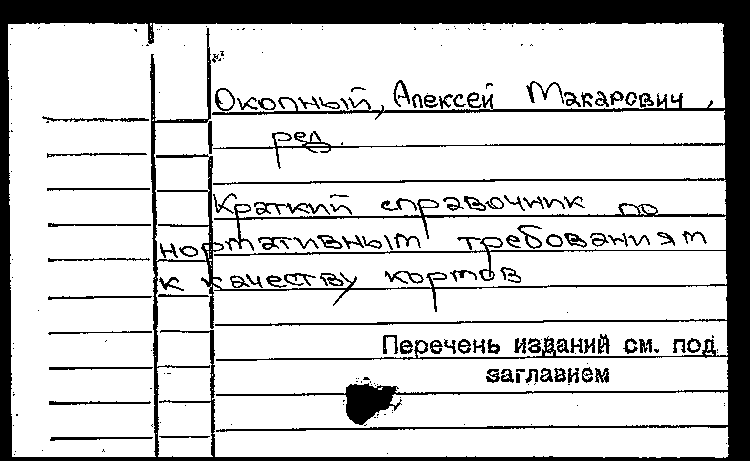 Окопный, Алексей Макарович,
ред.
Краткий справочник по
нормативным требованиям
к качеству кортов
Перечень изданий см. под
заглавием